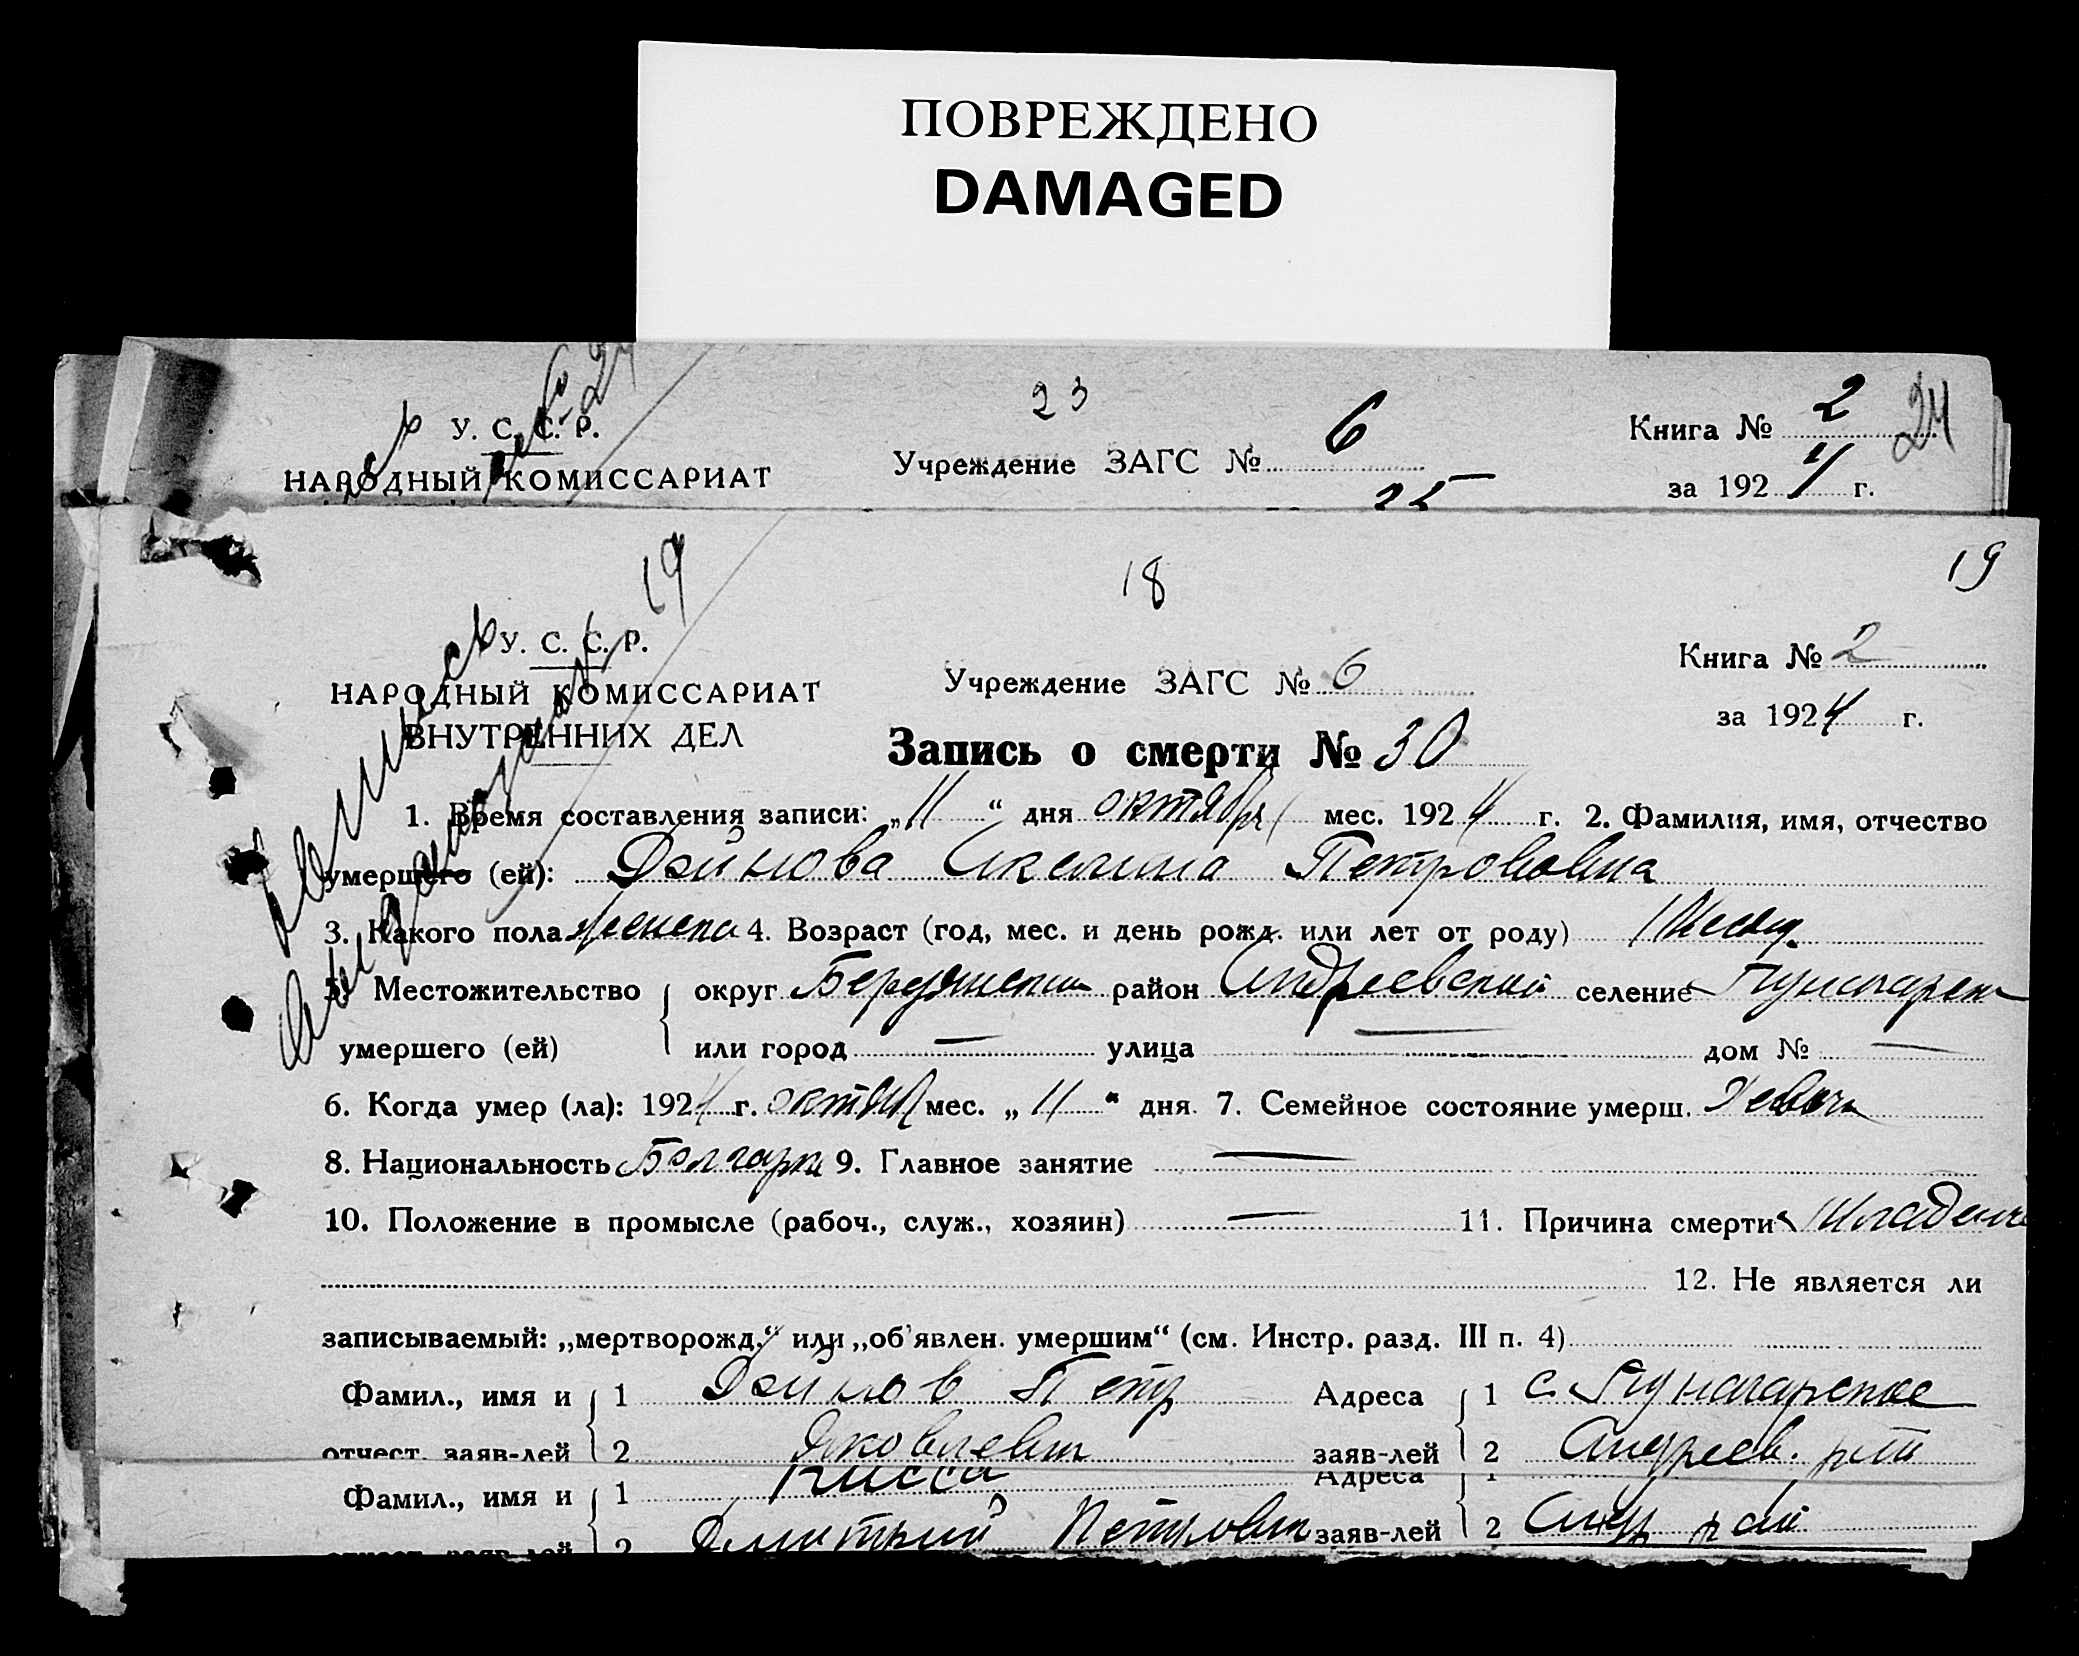 ПОВРЕЖДЕНО
DAMAGED
23
У. С. С. Р.
НАРОДНЫЙ КОМИССАРИАТ
Учреждение ЗАГС № 6
Книга № 2
24
за 1924 г.
25
19
18
19
У. С. С. Р.
НАРОДНЫЙ КОМИССАРИАТ
ВНУТРЕННИХ ДЕЛ
Учреждение ЗАГС № 6
Книга № 2
за 1924 г.
Запись о смерти № 30
1. Время составления записи: „11“ дня октября мес. 1924 г. 2. Фамилия, имя, отчество
умершего (ей): Дойнова Петровна
3. Какого пола женска 4. Возраст (год, мес. и день рожд. или лет от роду) 1 месяц.
5. Местожительство округ Бердянский район Андреевский селение
умершего (ей) или город — улица — дом № —
6. Когда умер (ла): 1924 г. октяб мес. „11“ дня. 7. Семейное состояние умерш.
8. Национальность Болгарк 9. Главное занятие —
10. Положение в промысле (рабоч., служ., хозяин) — 11. Причина смерти Младенч
12. Не является ли
записываемый: „мертворожд.“ или „об'явлен. умершим“ (см. Инстр. разд. III п. 4)
Фамил., имя и 1 Дойнов Петр Адреса 1 с.
отчест. заяв-лей 2 Яковлевич заяв-лей 2 Андреев. рай
Фамил., имя и 1 Кисса Адреса 1
отчест. заяв-лей 2 Дмитрий Петрович заяв-лей 2 Андр рай